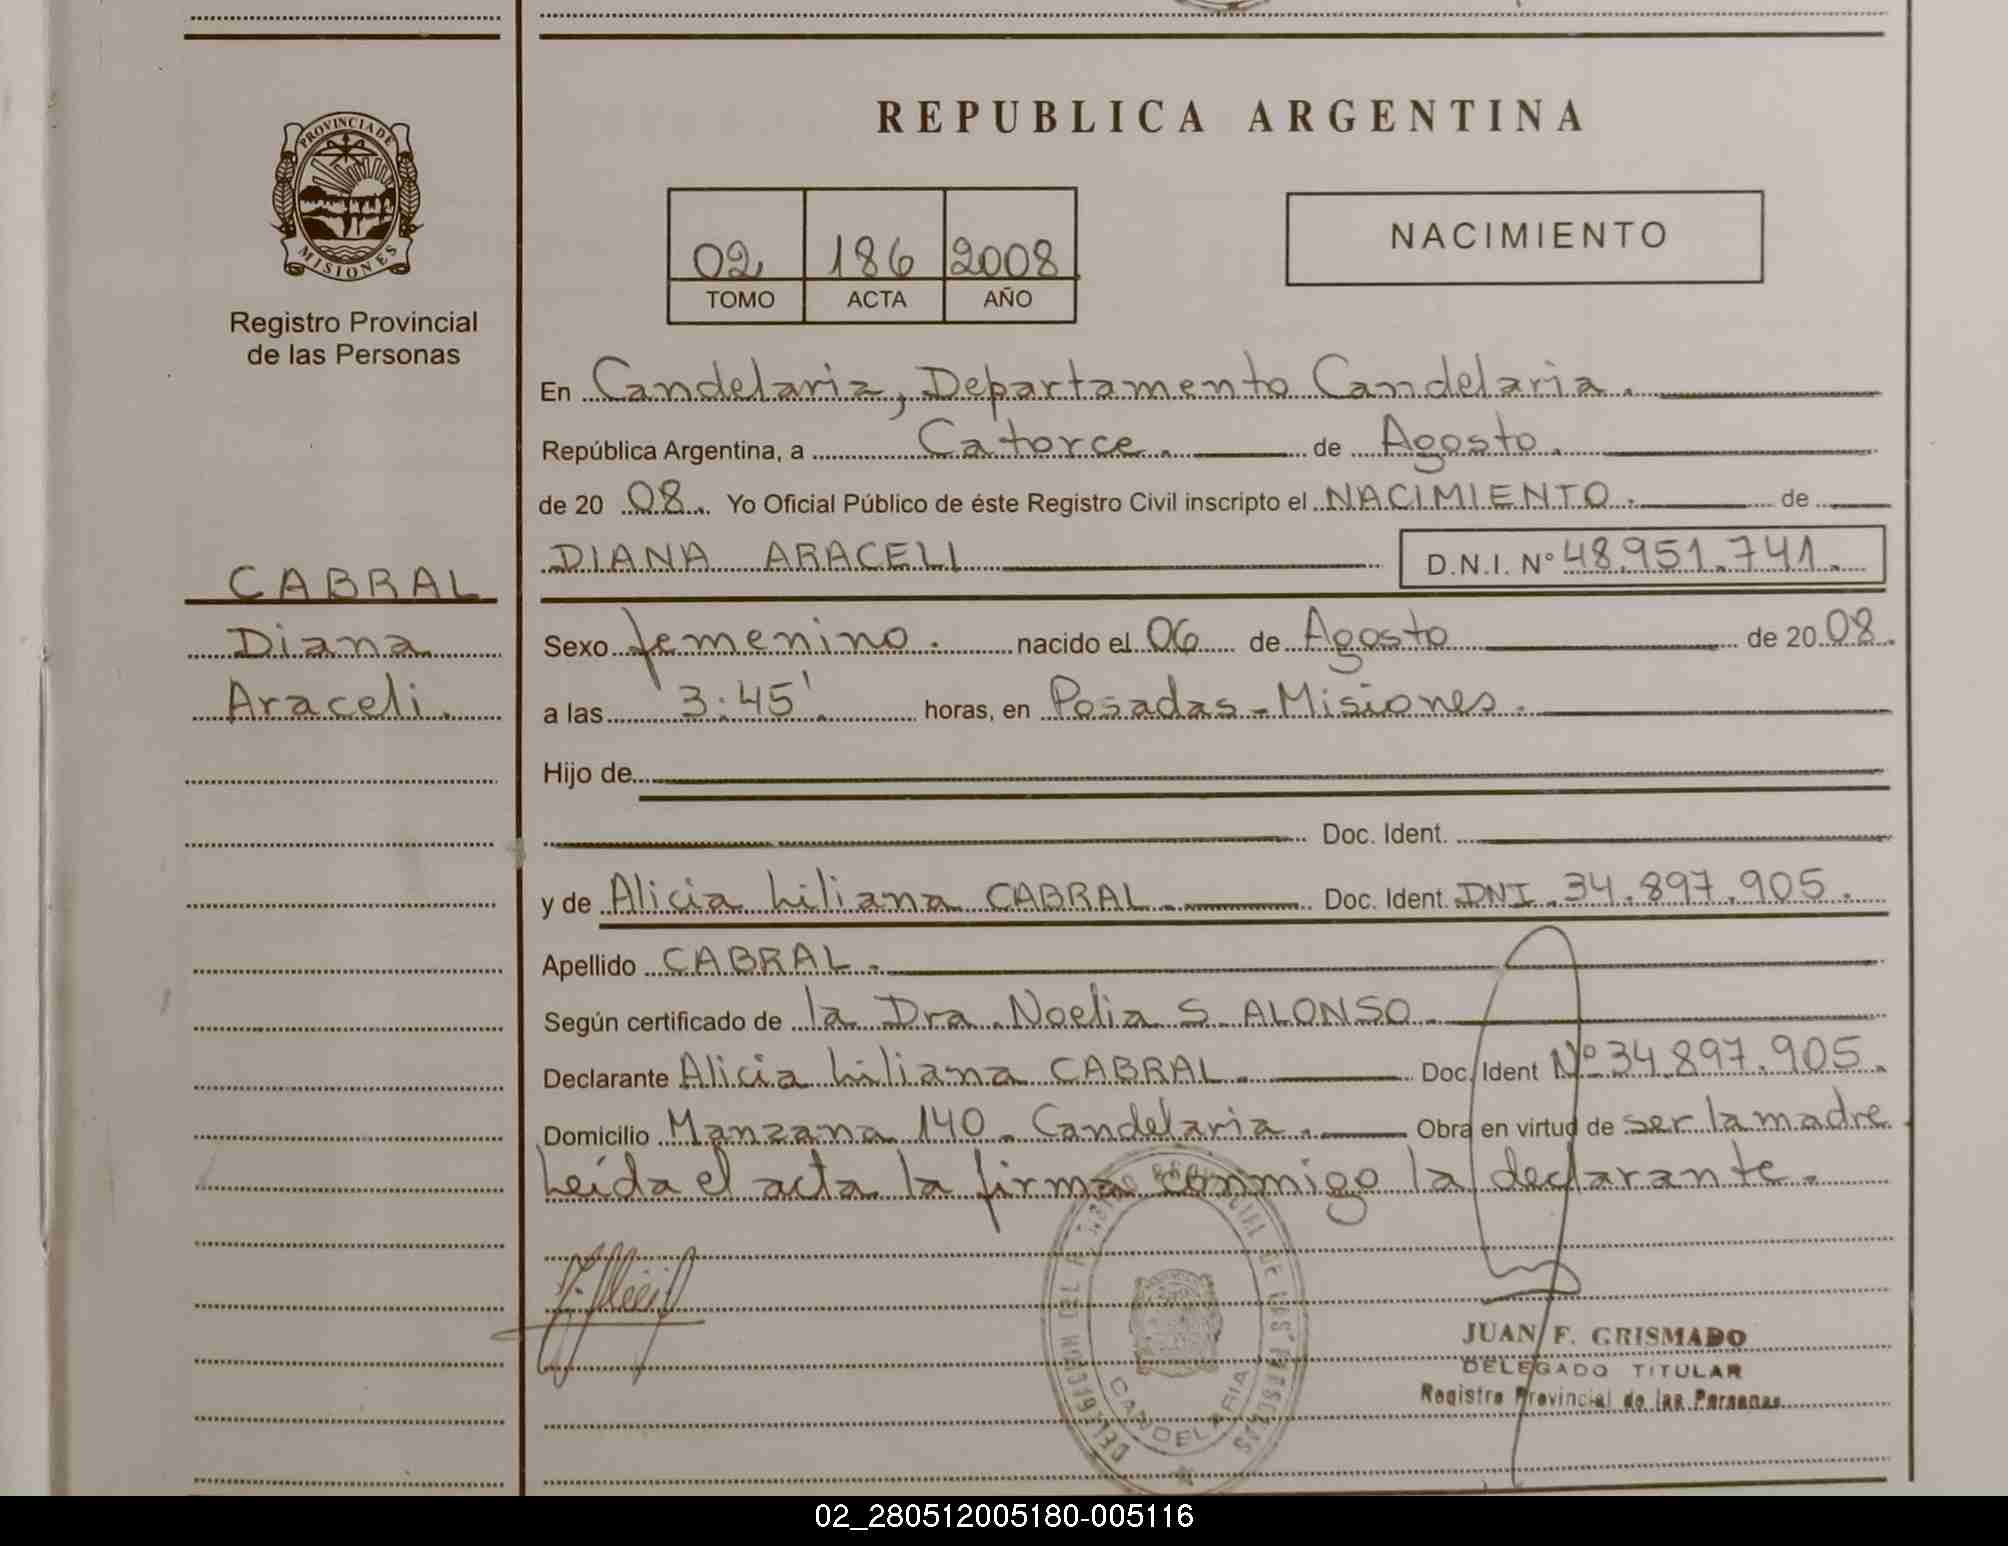 PROVINCIA DE
MISIONES
Registro Provincial
de las Personas
CABRAL
Diana
Araceli.
REPUBLICA ARGENTINA
02 186 2008
TOMO ACTA AÑO
NACIMIENTO
En Candelaria, Departamento Candelaria.
República Argentina, a Catorce. de Agosto.
de 20 08. Yo Oficial Público de éste Registro Civil inscripto el NACIMIENTO. de
DIANA ARACELI D.N.I. Nº 48.951.741.
Sexo femenino. nacido el 06 de Agosto de 20 08.
a las 3:45'. horas, en Posadas-Misiones.
Hijo de
Doc. Ident.
y de Alicia Liliana CABRAL. Doc. Ident. DNI. 34.897.905.
Apellido CABRAL.
Según certificado de la Dra. Noelia S. ALONSO.
Declarante Alicia Liliana CABRAL. Doc. Ident Nº 34.897.905.
Domicilio Manzana 140. Candelaria. Obra en virtud de ser la madre
Leída el acta la firma conmigo la declarante.
DELEGACION DEL REGISTRO PROVINCIAL DE LAS PERSONAS
CANDELARIA
JUAN F. GRISMADO
DELEGADO TITULAR
Registro Provincial de las Personas
02_280512005180-005116